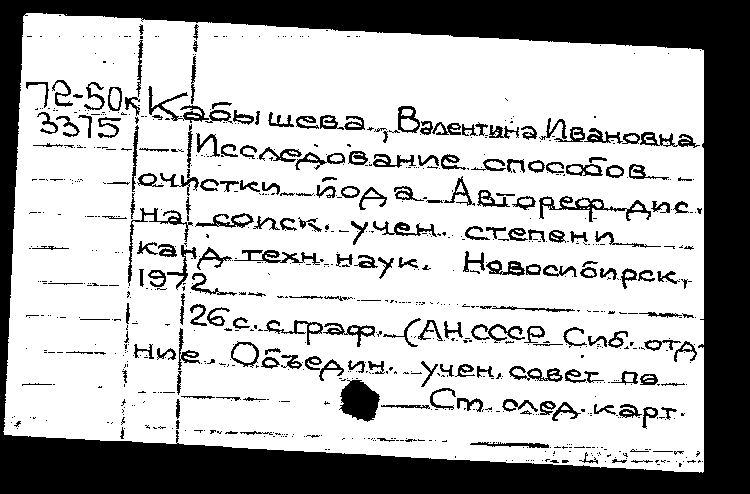 72-50к Кабышева, Валентина Ивановна.
3375
Исследование способов
очистки йода. Автореф. дис.
на соиск. учен. степени
канд. техн. наук. Новосибирск,
1972.
26 с. с граф. (АН СССР. Сиб. отд-
ние. Объедин. учен. совет по
См. след. карт.